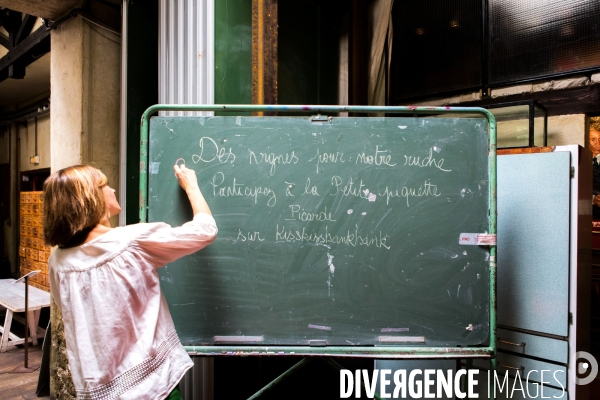 Dés vignes pour notre ruche
Participez à la Petite piquette
Picarde
sur Kisskissbankbank
DIVERGENCE IMAGES